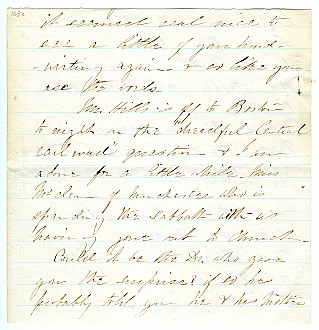 it seemed real nice to
see a little of your hand-
writing again & so like you
are the words
Mr. Hills is off to Boston
to night on the "dreadful Central
rail road" question & I am
alone for a little while. Miss
McLean of Manchester who is
spending the Sabbath with us
having gone out to Church.
Could it be the Dr. who gave
you the surprise? if so he
probably told you he & his Mother